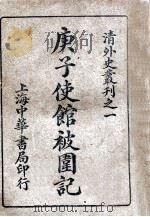 清外史叢刊之一
庚子使館被圍記
上海中華書局印行